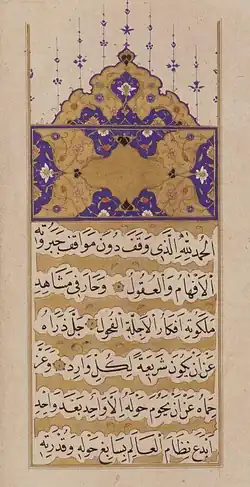 الحمد لله الذي وقف دون مواقف جبروته
الافهام والعقول وحار في مشاهد
ملكوته افكار الاجلة الفحول جل ذراه
عن ان يكون شريعة لكل وارد وعز
حماه عن ان يحوم حوله الا واحد بعد واحد
ابدع نظام العالم ببدايع حوله وقدرته